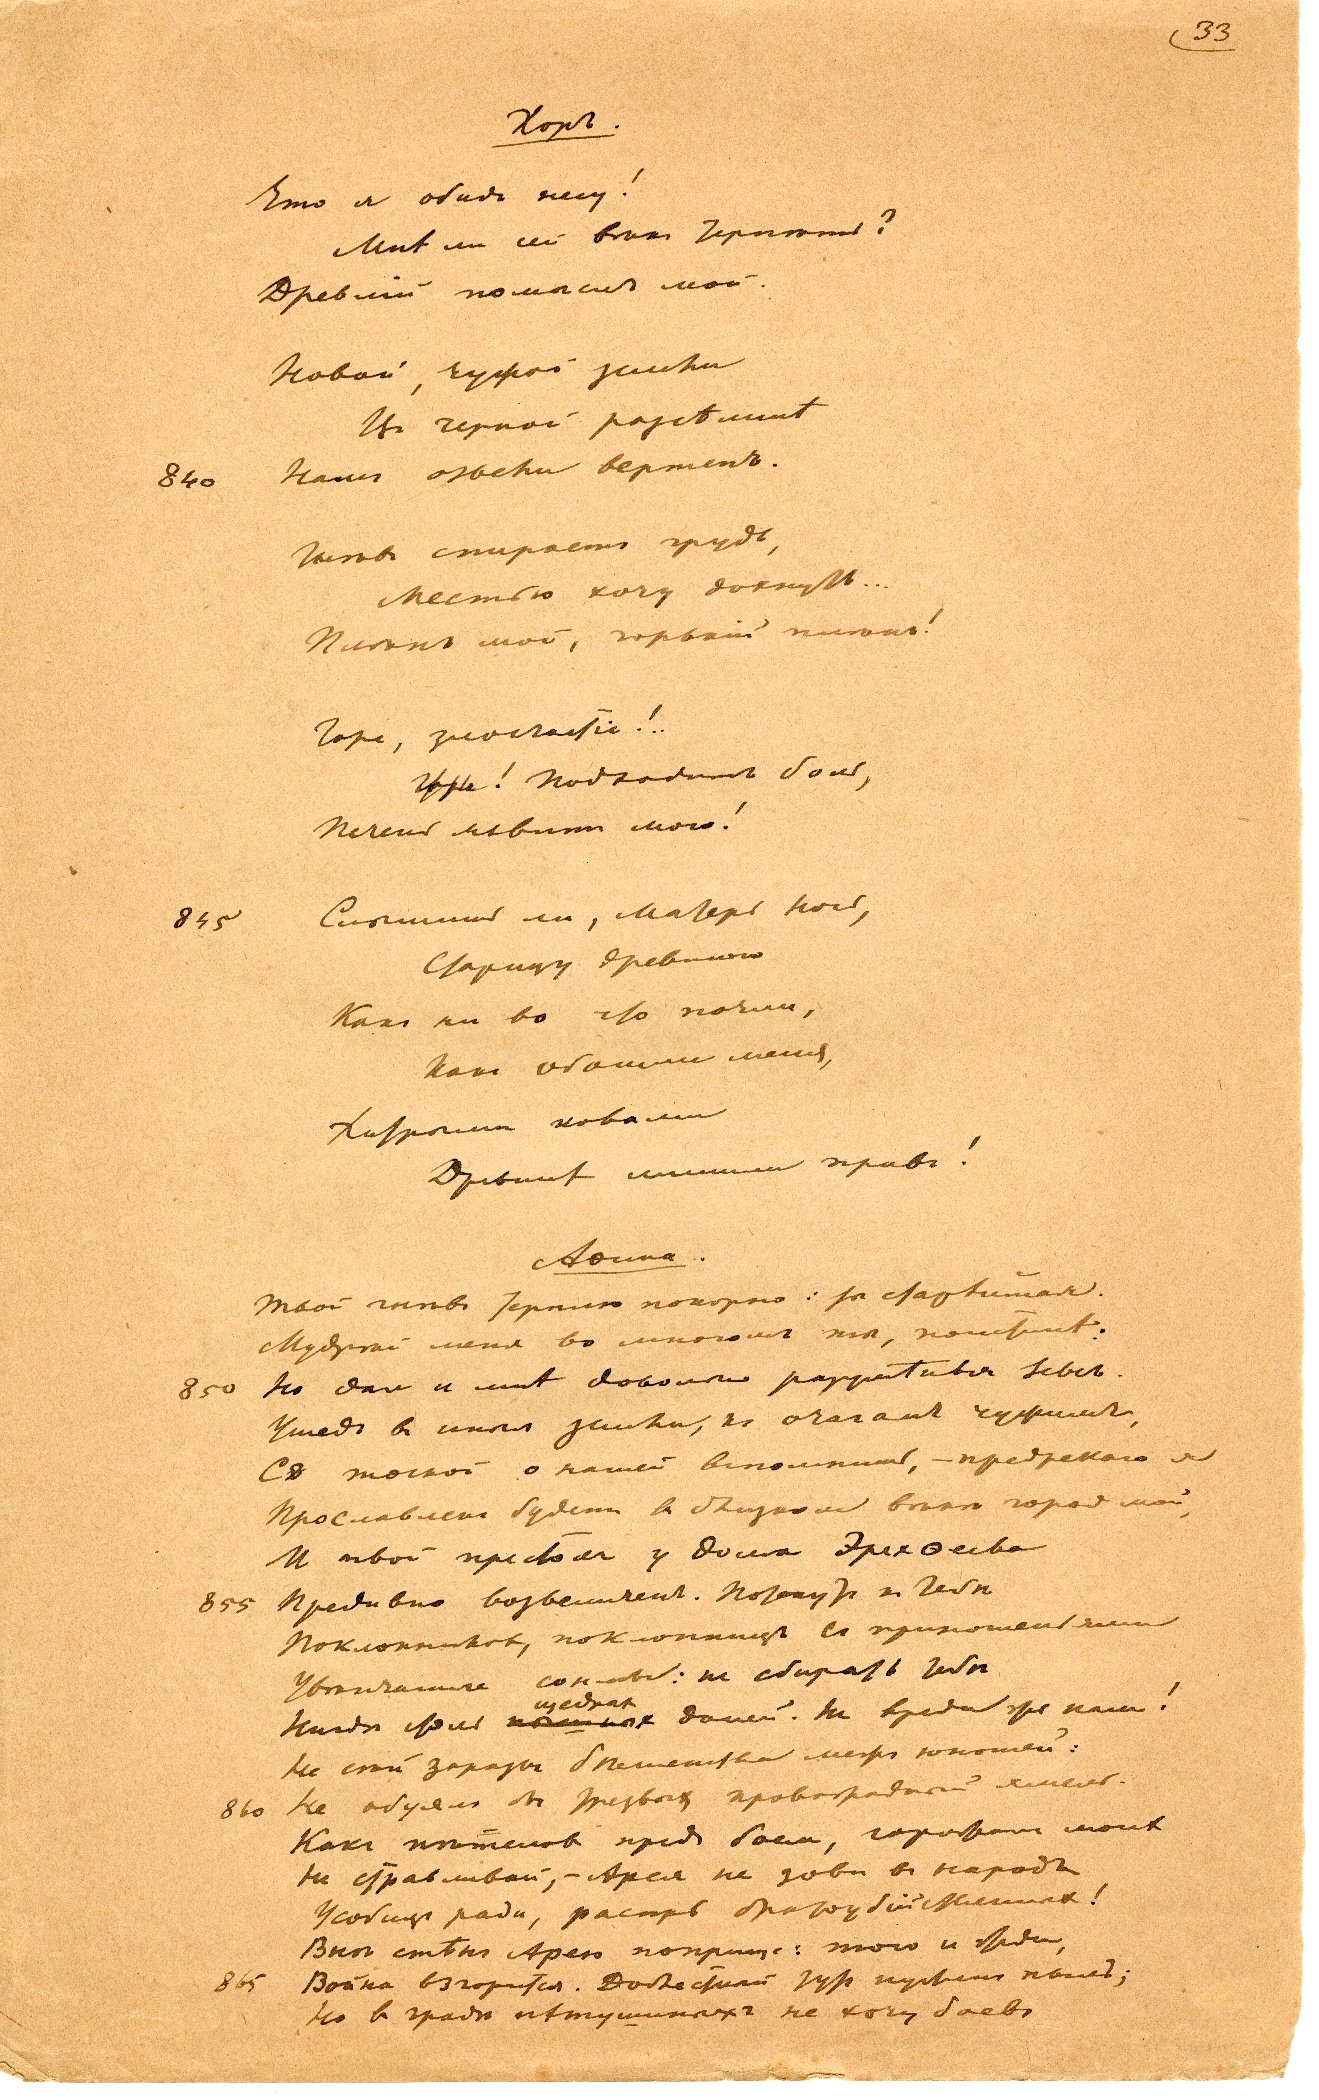 33
Хоръ.
Что я обидъ несу!
Мнѣ ли сей вѣкъ терпѣть?
Древлій помыслъ мой.
Новой, чужой земли
Въ черной разсѣлинѣ
840 Нашъ отнынѣ вертепъ.
Гнѣвъ спираетъ грудь,
Местью хочу дохнуть...
Плѣнъ мой, горькій плѣнъ!
Горе, злосчастіе!..
Чу! Подходитъ боль,
Печень язвитъ мою!
845 Слышишь ли, Матерь Ночь,
Старицу древнюю
Какъ ни во что почли,
Какъ обошли меня,
Хитрыми ковами
Древнѣ лишили правъ!
Аѳина.
Твой гнѣвъ терплю покорно: ты старѣйшая.
Мудрѣй меня во многомъ ты, поистинѣ.
850 Но далъ и мнѣ довольно разумѣнія Зевсъ.
Ушедъ въ иныя земли, къ очагамъ чужимъ,
Съ тоской о нашей вспомнишь, – предрекаю я
Прославленъ будетъ въ близкомъ вѣкѣ городъ мой,
И твой престолъ у дома Эрехѳеева
855 Предивно возвеличенъ. Потекутъ къ тебѣ
Поклонниковъ, поклонницъ съ приношеньями
Увѣнчанные сонмы: не сбирать тебѣ
Нигдѣ столь щедрыхъ даней. Не вреди же намъ!
Не сѣй заразы бѣшенства межъ юношей:
860 Не обуялъ бы трезвыхъ кровожадный хмель.
Какъ пѣтеловъ предъ боемъ, гражданъ моихъ
Не стравливай, – Арея не зови въ народъ
Усобицъ ради, распрь братоубійственныхъ!
Внѣ стѣнъ Арею поприще: того и жди,
865 Война взгорится. Доблестный тутъ нуженъ пылъ;
Но въ градѣ пѣтушиныхъ не хочу боевъ